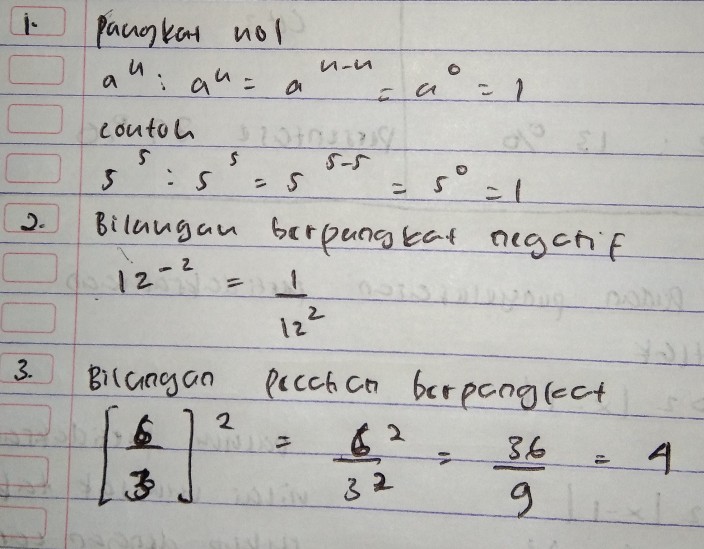 1. Pangkat nol
aⁿ : aⁿ = aⁿ⁻ⁿ = a⁰ = 1
contoh
5⁵ : 5⁵ = 5⁵⁻⁵ = 5⁰ = 1
2. Bilangan berpangkat negatif
12⁻² = 1/12²
3. Bilangan pecahan berpangkat
[6/3]² = 6²/3² = 36/9 = 4